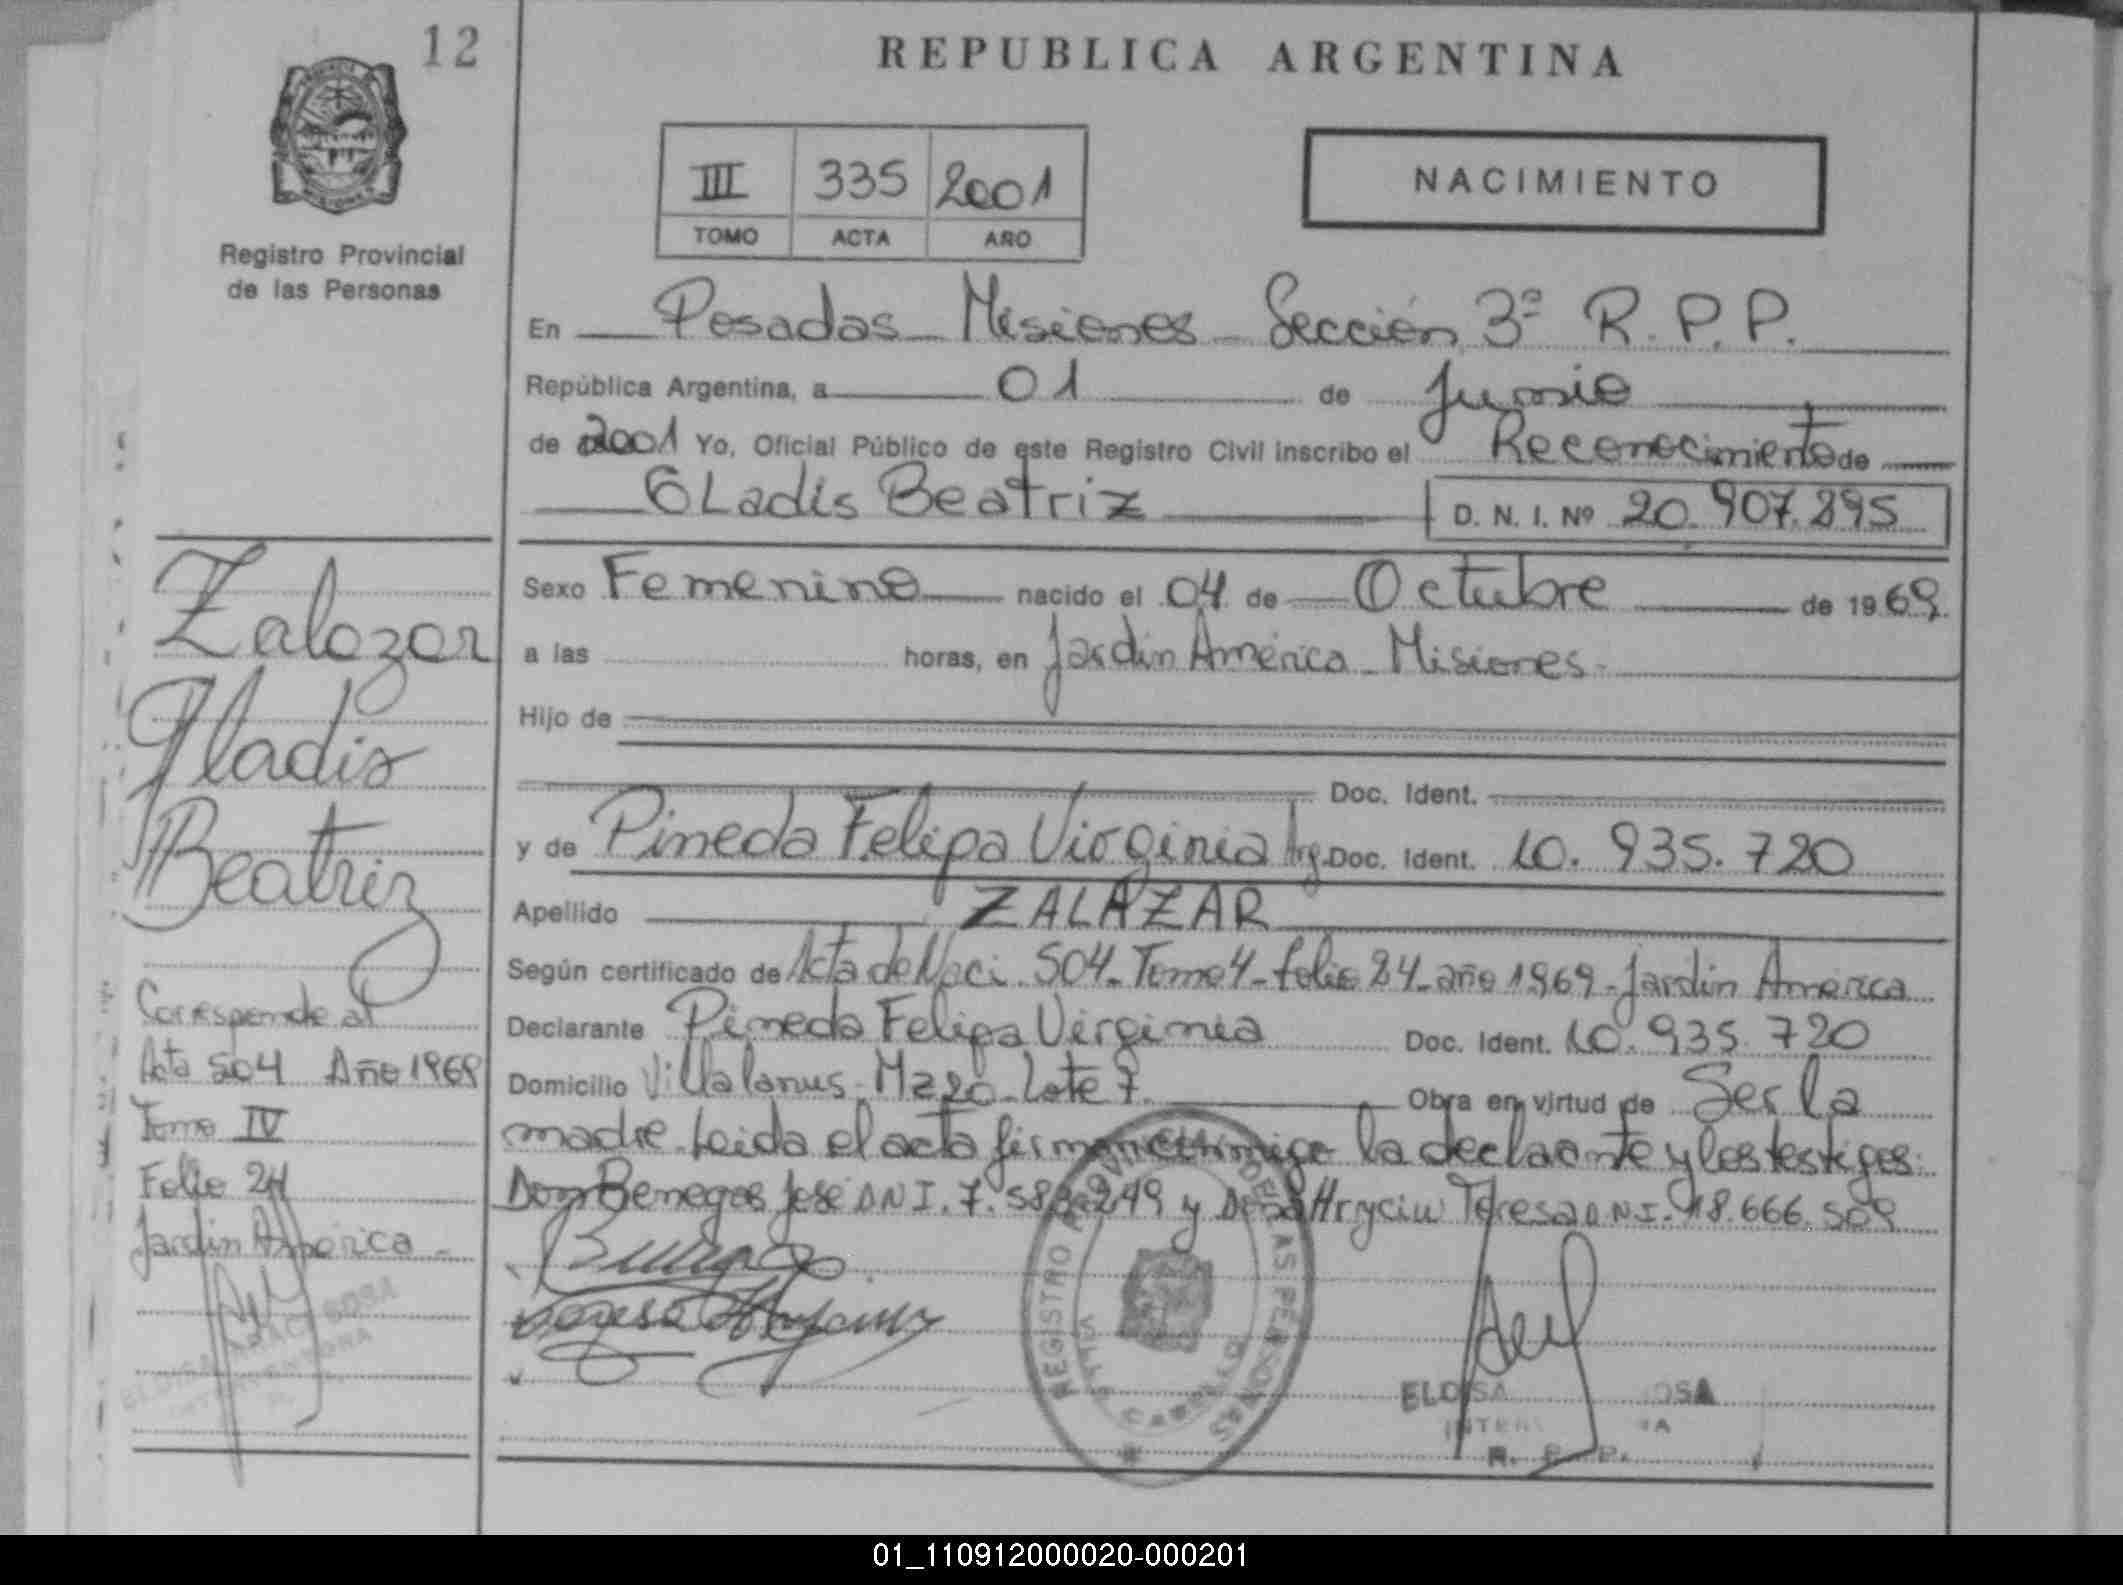 12
REPUBLICA ARGENTINA
III 335 2001
TOMO ACTA AÑO
NACIMIENTO
Registro Provincial
de las Personas
En Posadas Misiones Sección 3ª R.P.P.
República Argentina, a 01 de Junio
de 2001 Yo, Oficial Público de este Registro Civil inscribo el Reconocimiento de
GLadis Beatriz D. N. I. Nº 20.907.895
Sexo Femenino nacido el 04 de Octubre de 1969.
a las horas, en Jardin América Misiones
Hijo de
Doc. Ident.
y de Pineda Felipa Virginia Arg. Doc. Ident. 10.935.720
Apellido ZALAZAR
Según certificado de Acta de Naci. 504 - Tomo 4 - folio 24 - año 1969 - Jardin América
Declarante Pineda Felipa Virginia Doc. Ident. 10.935.720
Domicilio Villalanus - Mz 20 - Lote 7. Obra en virtud de Ser la
madre. Leida el acta firman conmigo la declarante y los testigos:
Don Benegas José DNI. 7.583.249 y Doña Hryciw Teresa DNI. 18.666.509
Zalazar
Gladis
Beatriz
Corresponde al
Acta 504 Año 1969
Tomo IV
Folio 24
Jardin América
REGISTRO PROVINCIAL DE LAS PERSONAS
ELOISA SOSA
R. P. P.
01_110912000020-000201